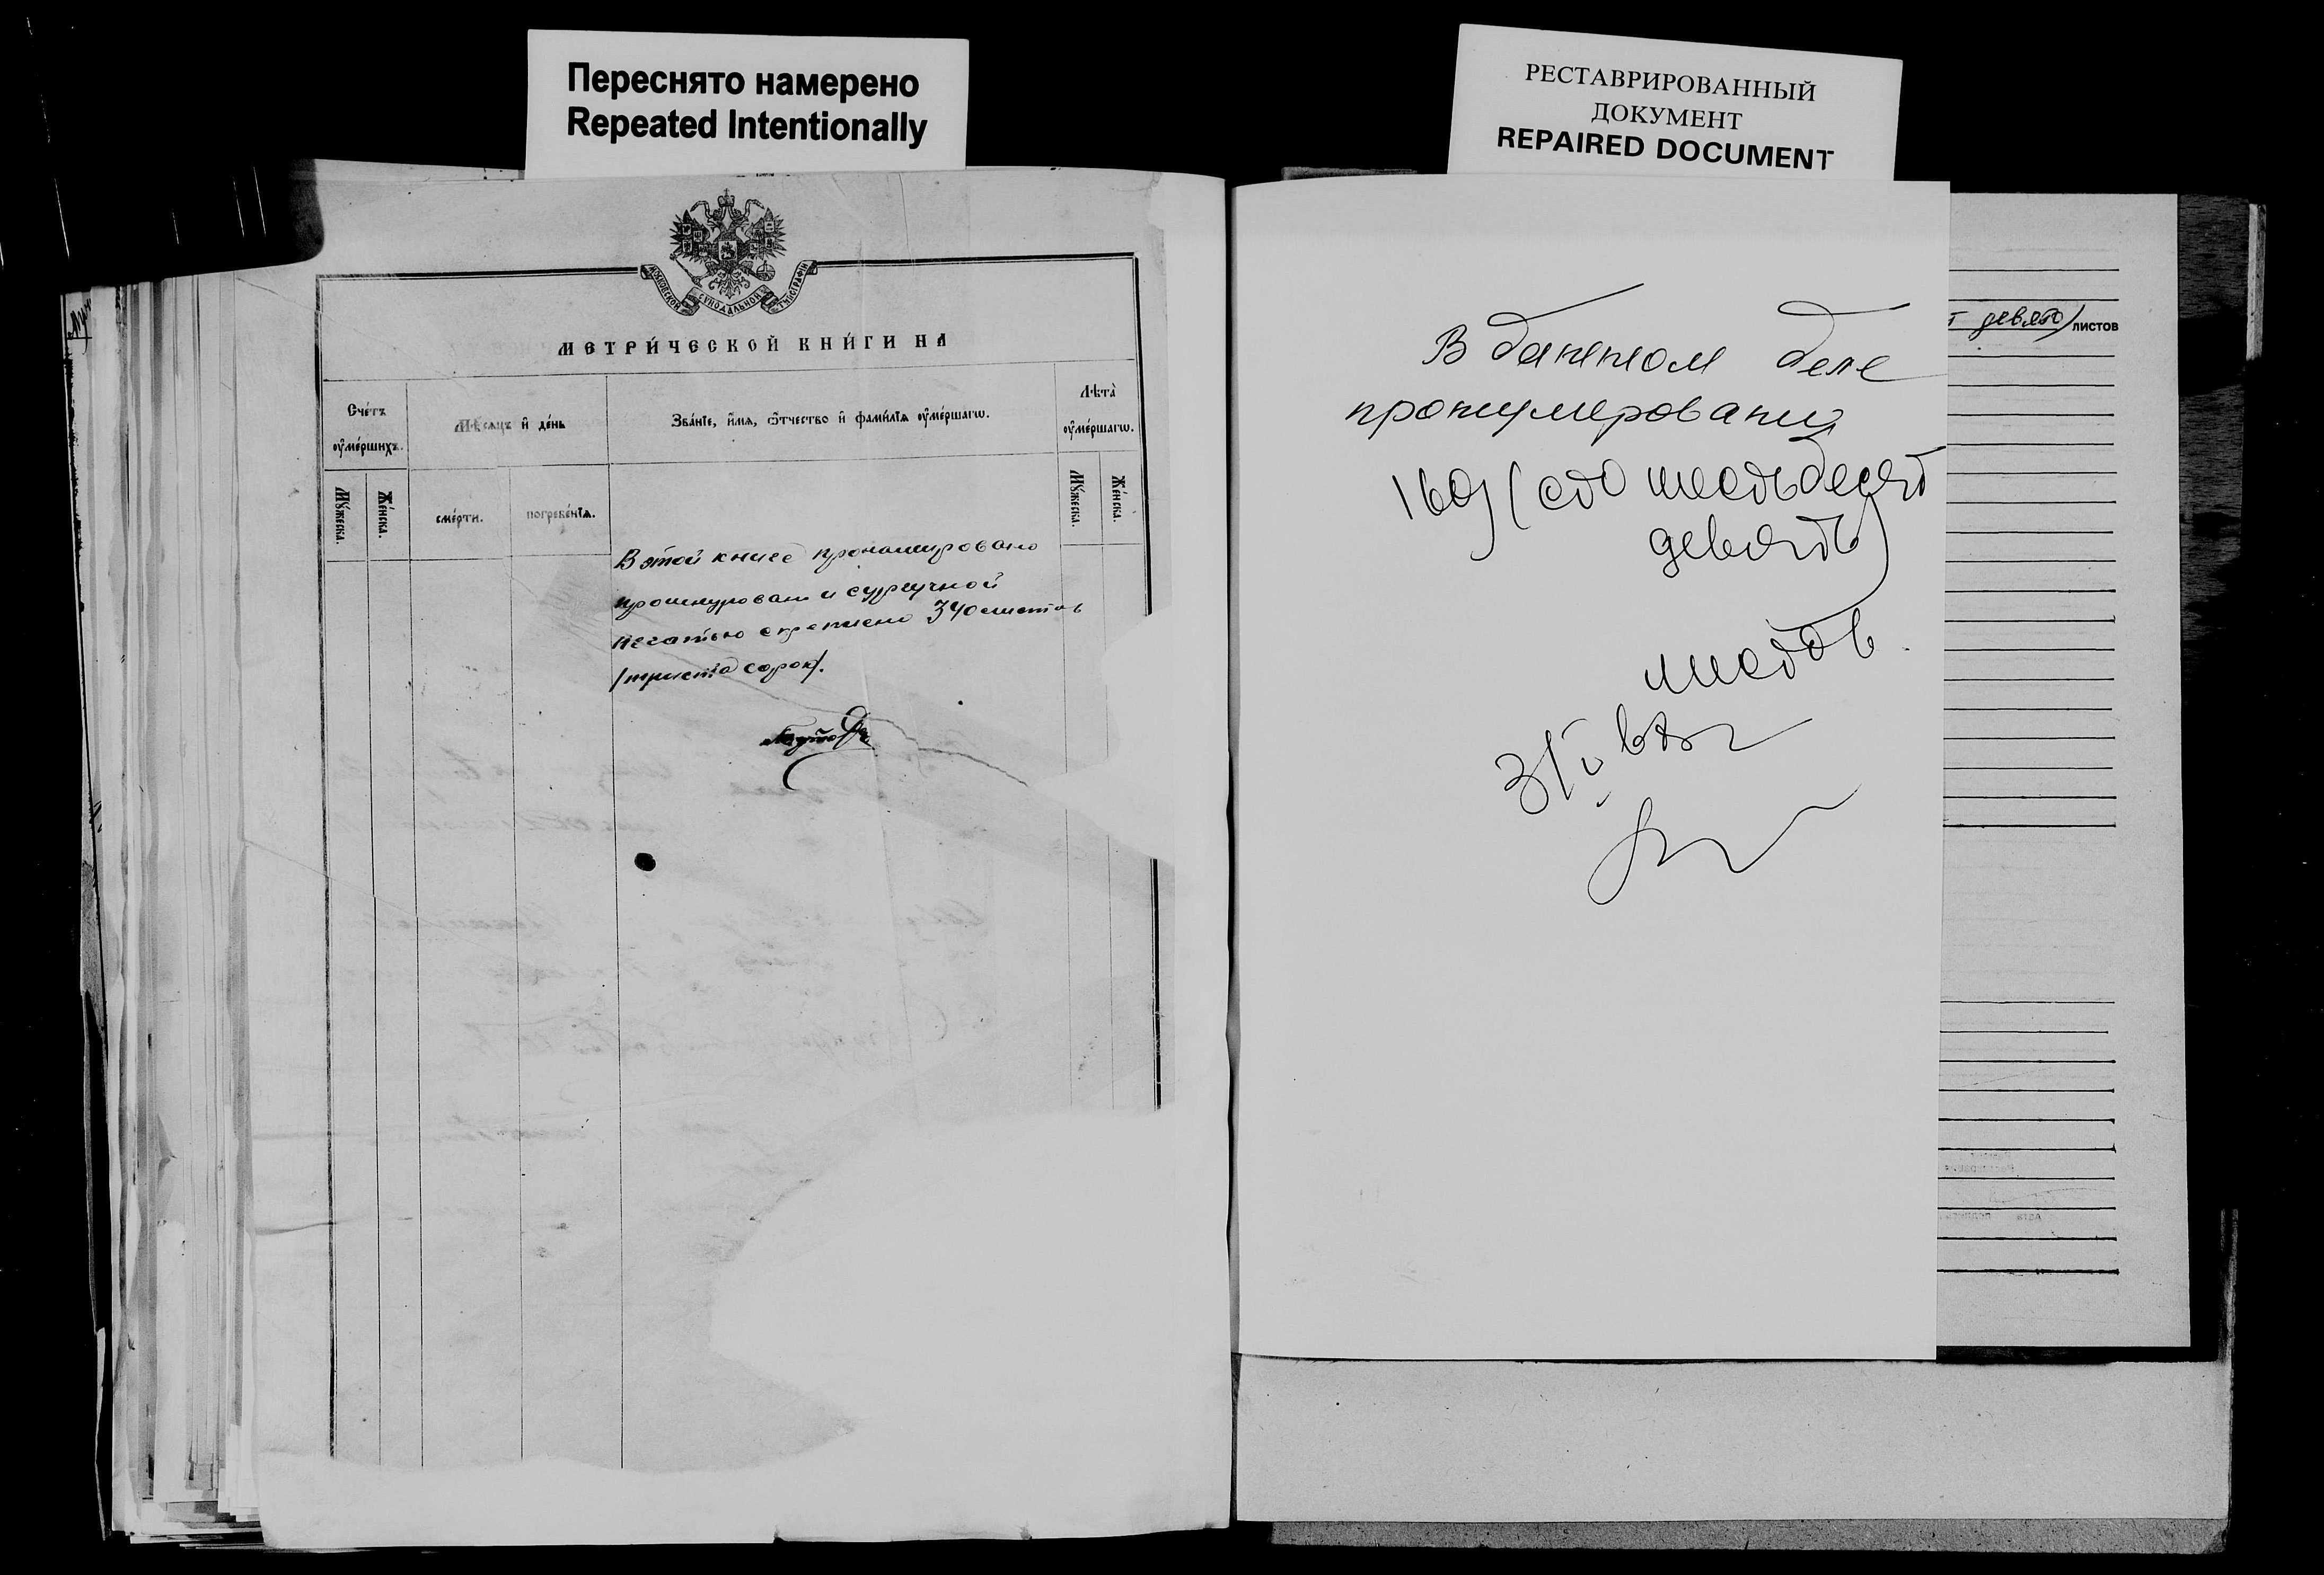 Переснято намерено
Repeated Intentionally
РЕСТАВРИРОВАННЫЙ
ДОКУМЕНТ
REPAIRED DOCUMENT
МОСКОВСКОЙ СѴНОДАЛЬНОЙ ТѴПОГРАФІИ
МЕТРИ́ЧЕСКОЙ КНИ́ГИ НА
Сче́тъ
ѹ҆ме́ршихъ.
Мѣ́сяцъ и҆ де́нь
Зва́нїе, и҆́мѧ, ѻ҆́тчество и҆ фами́лїѧ ѹ҆ме́ршагѡ.
Лѣта̀
ѹ҆ме́ршагѡ.
Мꙋ́жеска.
Же́нска.
сме́рти.
погребе́нїѧ.
Мꙋ́жеска.
Же́нска.
В этой книге пронумеровано
прошнуровано и сургучной
печатью скреплено 340 листов
/триста сорок/.
В данном деле
пронумерованы
169 (сто шестьдесят
девять)
листов.
девять) листов